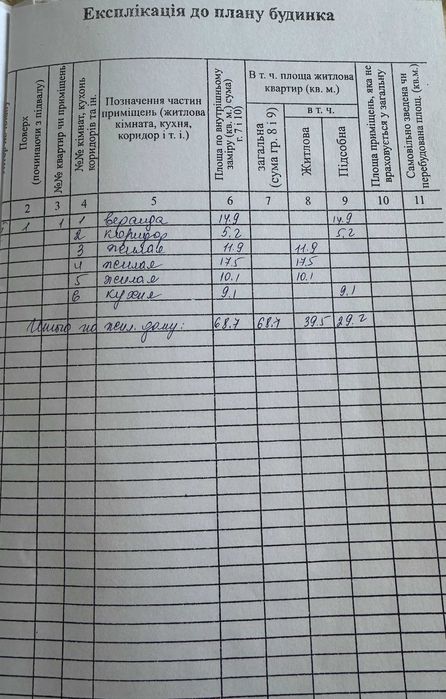 Експлікація до плану будинка
Поверх (починаючи з підвалу)
№№ квартир чи приміщень
№№ кімнат, кухонь коридорів та ін.
Позначення частин приміщень (житлова кімната, кухня, коридор і т. і.)
Площа по внутрішньому заміру (кв. м.) сума г. 7 і 10)
В т. ч. площа житлова квартир (кв. м.)
загальна (сума гр. 8 і 9)
в т. ч.
Житлова
Підсобна
Площа приміщень, яка не враховується у загальну
Самовільно зведена чи перебудована площ. (кв.м.)
2 3 4 5 6 7 8 9 10 11
1 1 1 веранда 14.9 14.9
2 коридор 5.2 5.2
3 жилая 11.9 11.9
4 жилая 17.5 17.5
5 жилая 10.1 10.1
6 кухня 9.1 9.1
Итого по жил. дому: 68.7 68.7 39.5 29.2